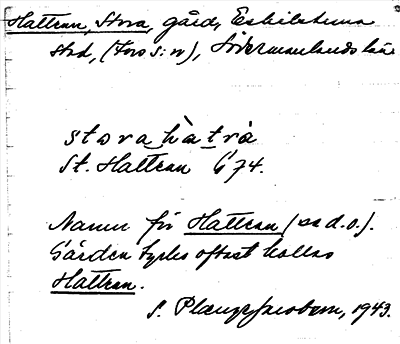 Hattran, Stora, gård, Eskilstuna
stad, (Fors s:n), Södermanlands län
stora hàtrá
St. Hattran G 74.
Namn för Hattran (se d.o.).
Gården tycks oftast kallas
Hattran.
S. 1943.